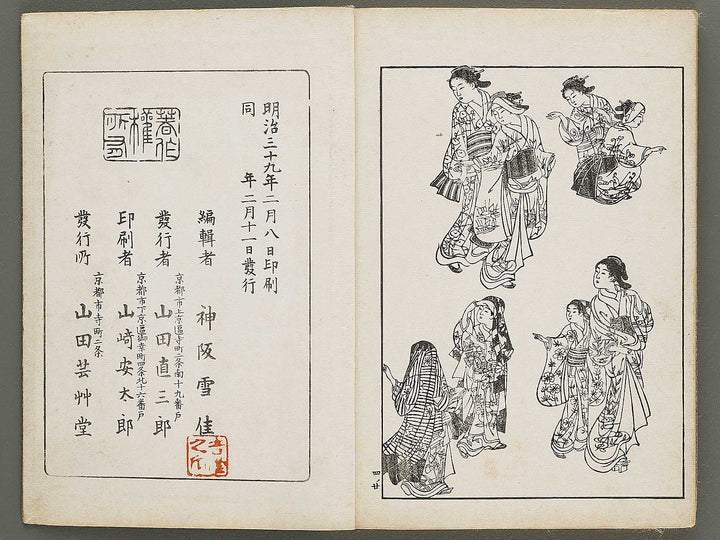 四ノ廿
明治三十九年二月八日印刷
同　年二月十一日發行
著作權所有
編輯者　神阪雪佳
京都市上京區寺町二条南十九番戸
發行者　山田直三郎
京都市下京區御幸町四条北十六番戸
印刷者　山崎安太郎
京都市寺町二条
發行所　山田芸艸堂